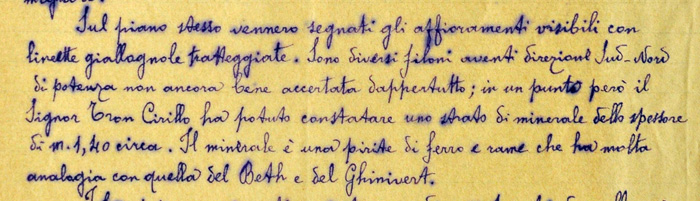 Sul piano stesso vennero segnati gli affioramenti visibili con
linette giallagnole tratteggiate. Sono diversi filoni aventi direzione Sud-Nord
di potenza non ancora bene accertata dappertutto; in un punto però il
Signor Tron Cirillo ha potuto constatare uno strato di minerale dello spessore
di m. 1,40 circa. Il minerale è una pirite di ferro e rame che ha molta
analogia con quella del Beth e del Ghinivert.